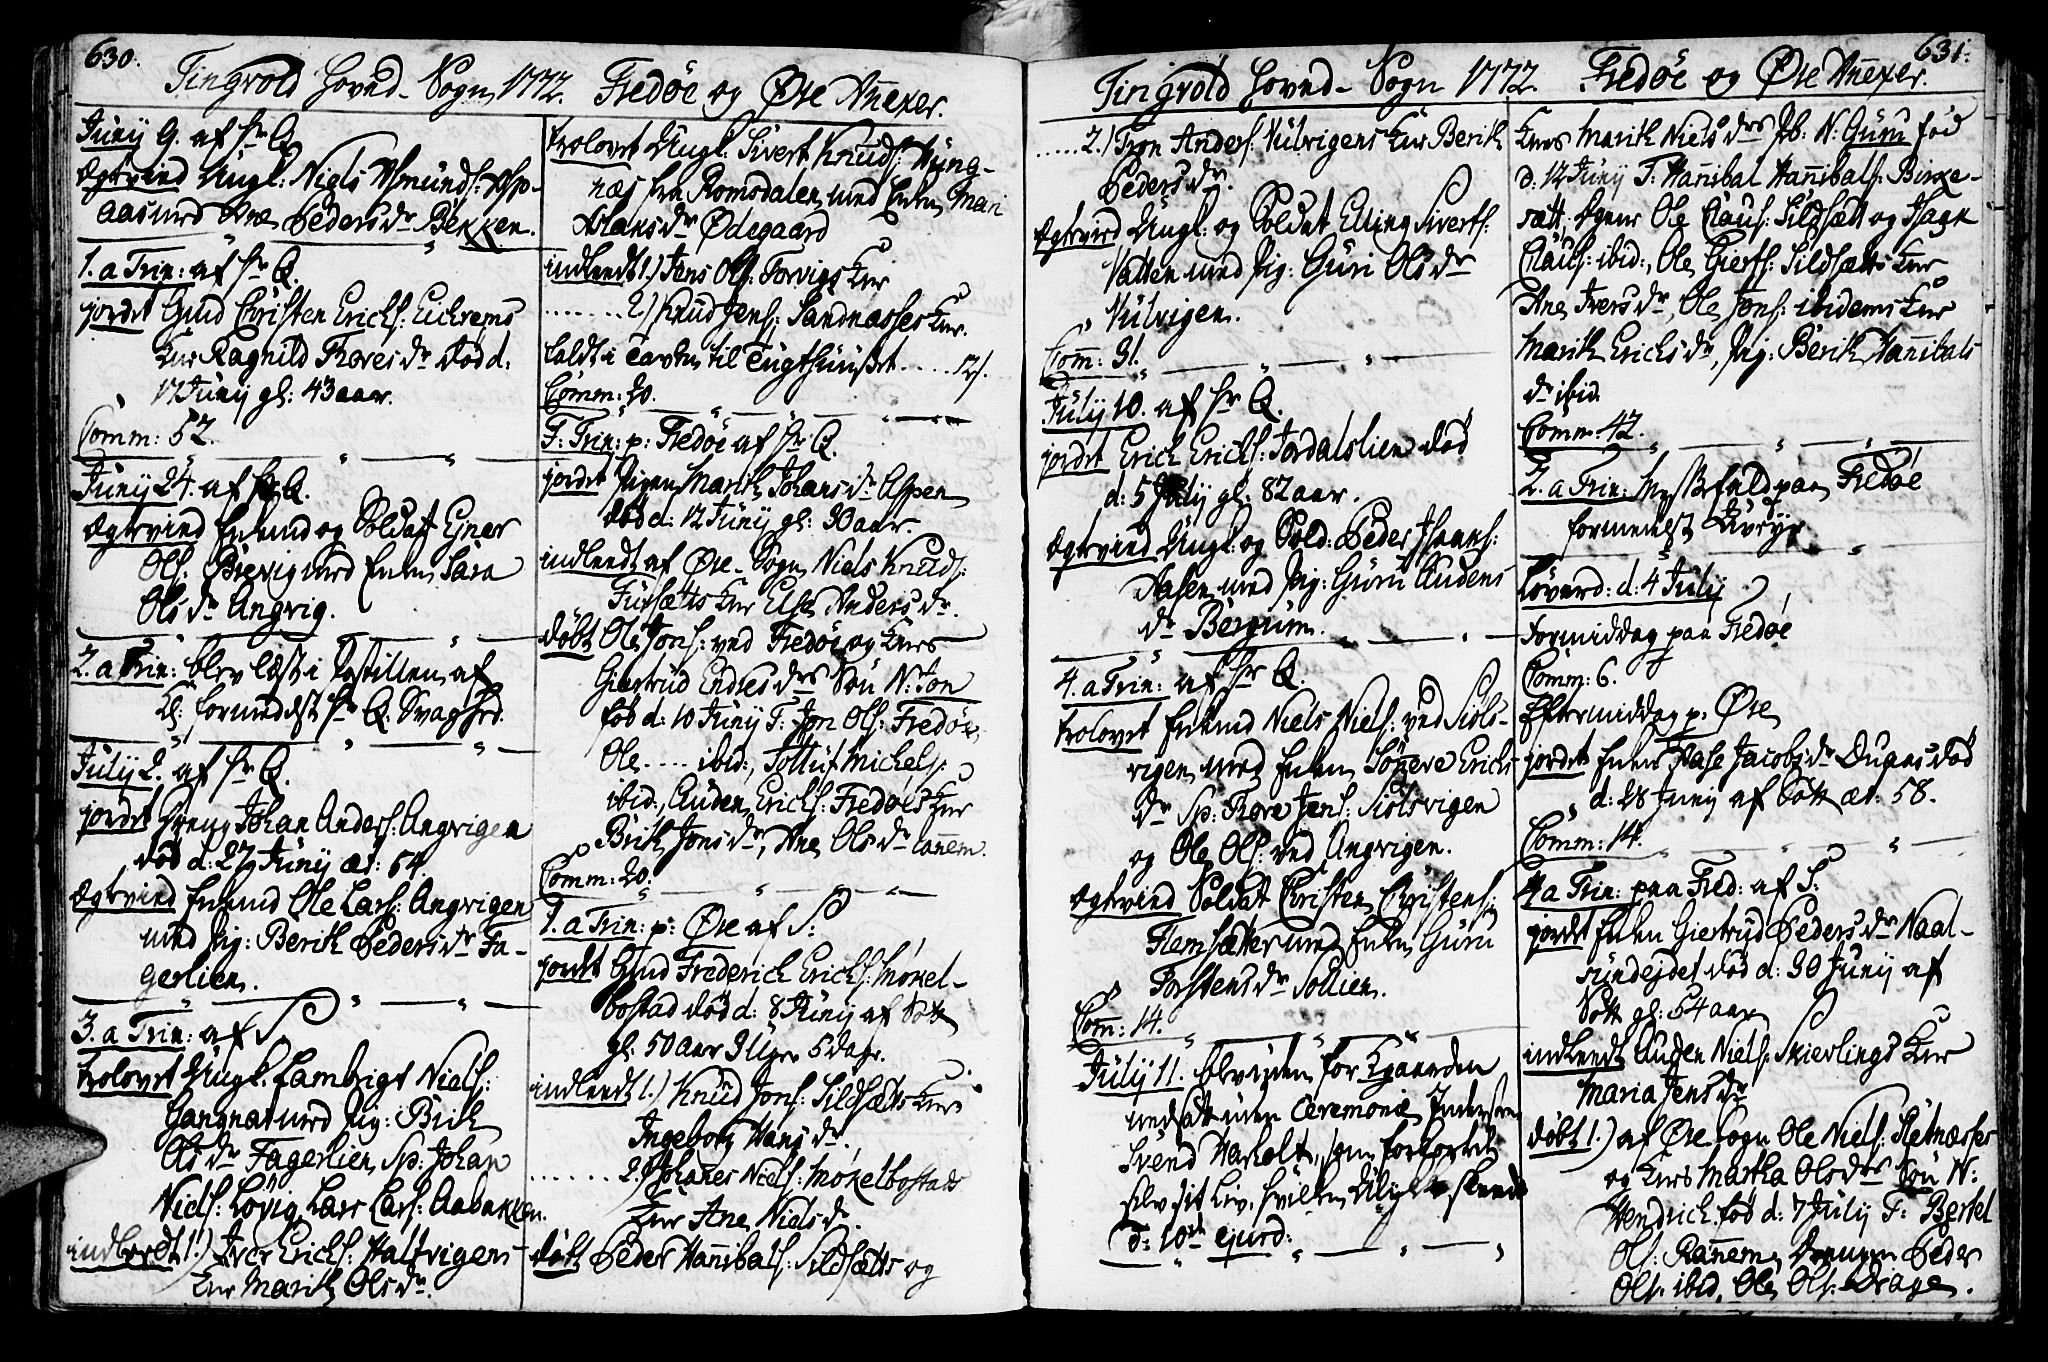 630.
Tingvold Hoved-Sogn 1772. Fredöe og Øre Annexer.
Juny 9. af Hr Q.
Ægtevied Ungk: Niels Asmunds: Asp-
aas med Ane Peders Dr Bekken.
1. a Trin: af Hr Q.
jordet Gmd Christen Erichs: Eichrems
Kur Ragnild Thores Dr död d.
17 Juny gl: 43 aar.
Comm: 52.
Juny 24. af Hr Q.
Ægtevied Enkemd og Soldat Ejner
Ols: Brevig med Enken Sara
Ols Dr Angvig.
2. a Trin: blev læst i Postillen af
Kl: formedelst Hr Q: Svaghed.
July 2. af Hr Q.
jordet Dreng Johan Anders: Angvigen
död d: 27 Juny æt: 54.
Ægtevied Enkemd Ole Lars: Angvigen
med Pig: Berith Peders Dr Fa-
gerlien.
3. a Trin: af S
trolovet Ungk. Lambrigt Niels:
Gangnat med Pig: Brith
Ols Dr Fagerlien, Sp: Johan
Niels: Lövig, Lars Lars: Aabakken.
indleedt 1.) Iver Erichs: Halsvigens
Kur Marith Ols Dr.
trolovet Ungk: Sivert Knuds: Hung-
næs fra Romsdalen med Enken Mari
Hans Dr Ödegaard
indleedt 1.) Jens Ols: Torvigs Kur
....... 2.) Knud Jens: Sandnæsses Kur.
faldt i Tavlen til Tugthuuset..... 12 s.
Comm: 20.
F: Trin: p: Fredöe af Hr Q.
jordet Pigen Marith Johans Dr Aspen
död d: 12 Juny gl: 30 aar.
indleedt af Øre-Sogn Niels Knuds:
Fursætts Kur Else Anders Dr.
döbt Ole Jons: ved Fredöe og Kurs
Giertrud Endres Drs Sön N: Jon
föd d: 10 Juny F: Jon Ols: Fredöe,
Ole .... ibid:, Tollüf Michels:
ibid:, Auden Erichs: Fredöes Kur
Brith Jons Dr, Ane Ols Dr Canem.
Comm: 20.
1. a Trin: p: Øre af S:
jordet Gmd Frederich Erichs: Mökel-
bostad död d: 8 Juny af Sott
gl: 50 aar 3 Uger 5 Dage.
indleedt 1.) Knud Jons: Sildsætts Kur
Ingeborg Hans Dr.
....... 2.) Johanes Niels: Mökelbostads
Kur Ane Niels Dr.
döbt Peder Hannibals: Sildsætts og
631.
Tingvold Hoved-Sogn 1772. Fredöe og Øre Annexer.
..... 2.) Tron Anders: Vulvigens Kur Berith
Peders Dr.
Ægtevied Ungk: og Soldat Elling Siverts:
Vatten med Pig: Guri Ols Dr
Vulvigen.
Comm: 31.
July 10. af Hr Q.
jordet Erich Erichs: Jordalslien död
d: 5 July gl: 82 aar.
Ægtevied Ungk: og Sold: Peder Isaacs:
Aasen med Pig: Guru Audens
Dr Bergum.
4. a Trin: af Hr Q.
trolovet Enkemd Niels Niels: ved Siols-
vigen med Enken Sönneve Erichs
Dr Sp: Thore Jens: Siolsvigen
og Ole Ols: ved Angvigen.
Ægtevied Soldat Christen Christens:
Flemsæter med Enken Guru
Torstens Dr Sollien.
Comm: 14.
July 11. blev uden for Kgaarden
nedsatt uden Ceremonie Inderstens
Svend Harholt, som forkortet
selv sit Liv, hvilken Ulykke skeede
D: 10de ejusd:
Kurs Marith Niels Drs Pb: N: Guru föd
d: 12 Juny F: Hannibal Hannibals: Birke-
sætt, Drenge Ole Claus: Sildsætt og Isach
Claus: ibid:, Ole Gierts: Sildsætts Kur
Ane Ivers Dr, Ole Jons: ibidems Kur
Marith Erichs Dr, Pig: Berith Hannibals
Dr ibid.
Comm: 42.
2. a Trin: Messefald paa Fredöe
formedelst Livsyge
Löverd: d: 4 July
Formiddag paa Fredöe
Comm: 6.
Eftermiddag p: Øre
jordet Enken Aase Jacobs Dr Dugaas död
d: 28 Juny af Sott æt: 58.
Comm: 14.
4 a Trin: paa Fred: af S:
jordet Enken Giertrud Peders Dr Naal-
sundejdet död d: 30 Juny af
Sott gl: 54 aar
indleedt Auden Niels: Skierlings Kur
Maria Jens Dr
döbt 1.) af Øre Sogn Ole Niels: Sletnæsses
og Kurs Martha Ols Drs Sön N:
Hendrich föd d: 7 July F: Bertel
Ols: Rannem, Drengen Peder
Ols: ibid, Ole Ols: Drage.